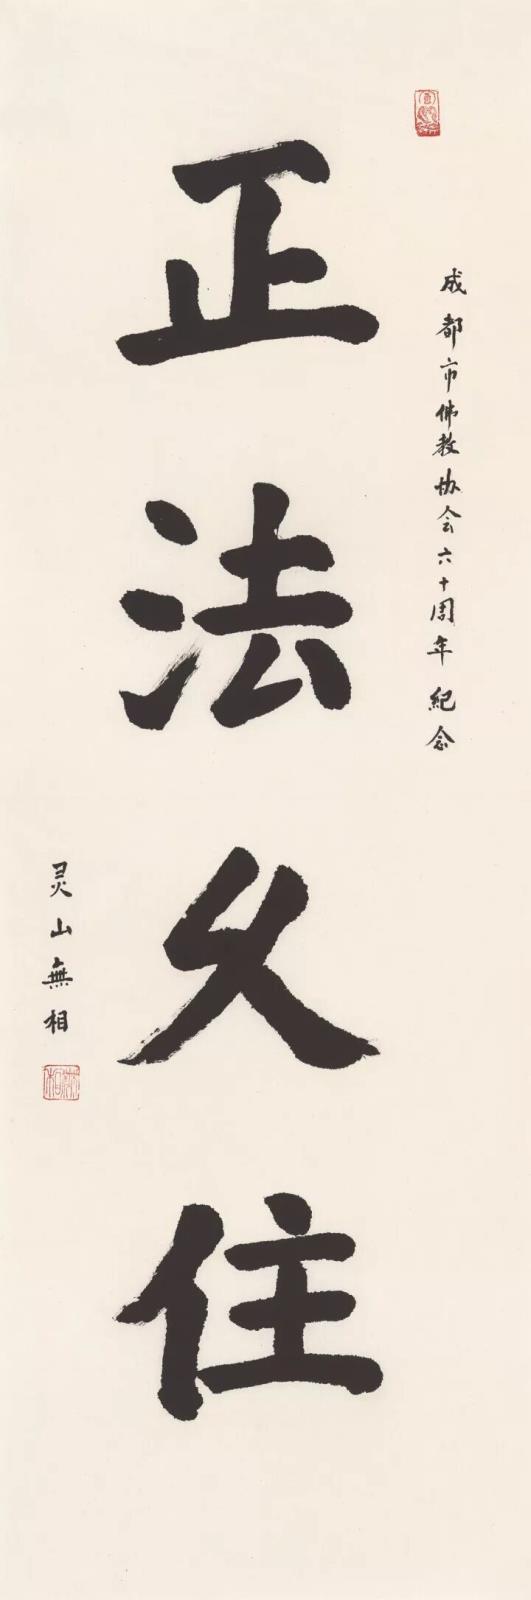 成都市佛教协会六十周年紀念
正法久住
灵山無相
無相